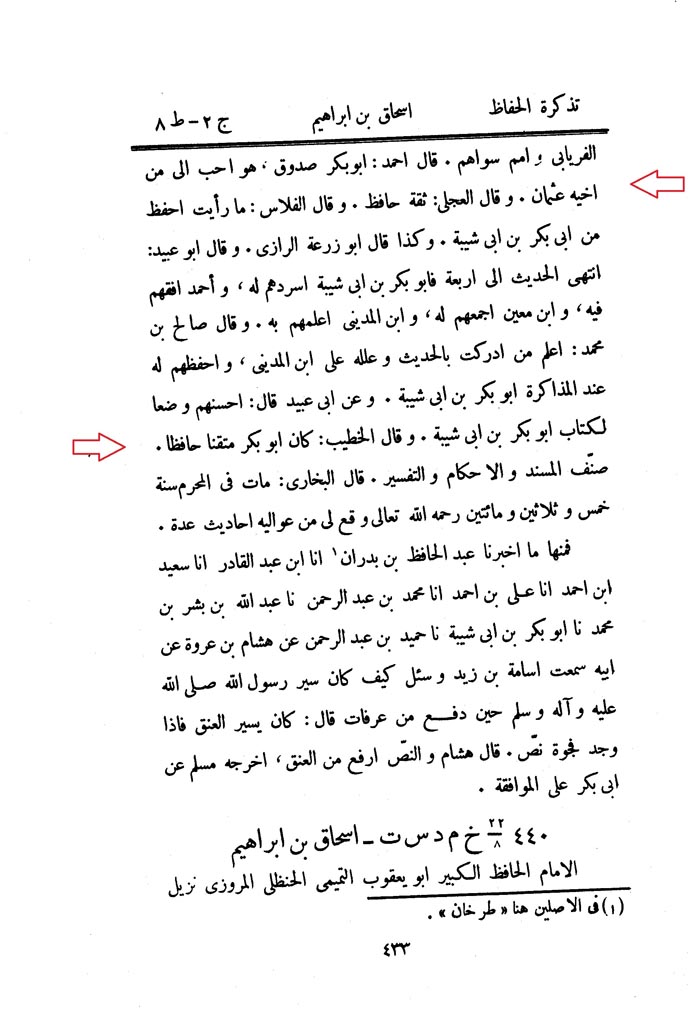 تذكرة الحفاظ اسحاق بن ابراهيم ج ٢ – ط ٨
الفريابى و امم سواهم . قال احمد : ابوبكر صدوق ، هو احب الى من
اخيه عثمان . و قال العجلى : ثقة حافظ . و قال الفلاس : ما رأيت احفظ
من ابى بكر بن ابى شيبة . وكذا قال ابو زرعة الرازى . و قال ابو عبيد :
انتهى الحديث الى اربعة فابو بكر بن ابى شيبة اسردهم له ، و أحمد افقههم
فيه ، و ابن معين اجمعهم له ، و ابن المدينى اعلمهم به . و قال صالح بن
محمد : اعلم من ادركت بالحديث و علله على ابن المدينى ، و احفظهم له
عند المذاكرة ابو بكر بن ابى شيبة . و عن ابى عبيد قال : احسنهم وضعا
لكتاب ابو بكر بن ابى شيبة . و قال الخطيب : كان ابو بكر متقنا حافظا .
صنّف المسند و الاحكام و التفسير . قال البخارى : مات فى المحرم سنة
خمس و ثلاثين و مائتين رحمه الله تعالى و قع لى من عواليه احاديث عدة .
فمنها ما اخبرنا عبد الحافظ بن بدران ١ انا ابن عبد القادر انا سعيد
ابن احمد انا على بن احمد انا محمد بن عبد الرحمن نا عبد الله بن بشر بن
محمد نا ابو بكر بن ابى شيبة نا حميد بن عبد الرحمن عن هشام بن عروة عن
ابيه سمعت اسامة بن زيد و سئل كيف كان سير رسول الله صلى الله
عليه و آله و سلم حين دفع من عرفات قال : كان يسير العنق فاذا
وجد فجوة نصّ . قال هشام و النصّ ارفع من العنق ، اخرجه مسلم عن
ابى بكر على الموافقة .
٤٤٠ ٢٢/٨ خ م د س ت – اسحاق بن ابراهيم
الامام الحافظ الكبير ابو يعقوب التميمى الحنظلى المروزى نزيل
(١) فى الاصلين هنا « طرخان » .
٤٣٣